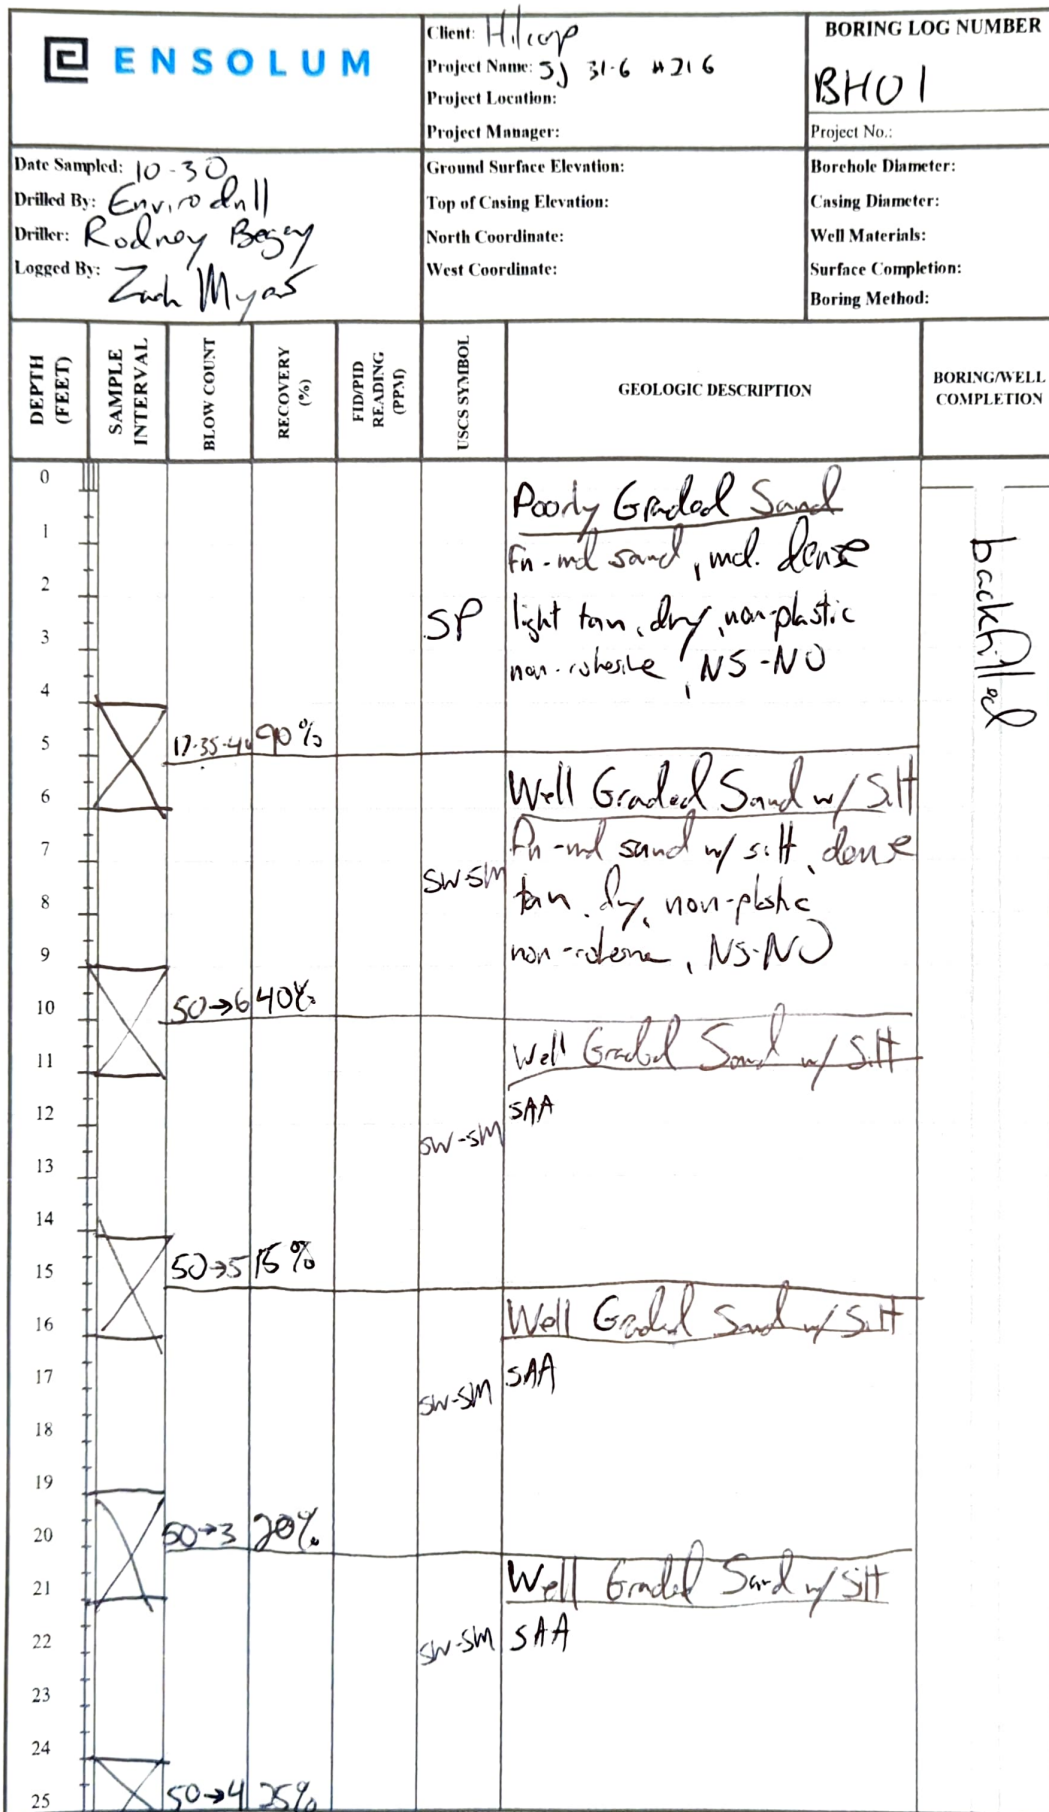 ENSOLUM
Client: Hilcorp
Project Name: SJ 31-6 #216
Project Location:
Project Manager:
BORING LOG NUMBER
BH01
Project No.:
Date Sampled: 10-30
Drilled By: Envirodrill
Driller: Rodney Begay
Logged By: Zach Myers
Ground Surface Elevation:
Top of Casing Elevation:
North Coordinate:
West Coordinate:
Borehole Diameter:
Casing Diameter:
Well Materials:
Surface Completion:
Boring Method:
DEPTH (FEET)
SAMPLE INTERVAL
BLOW COUNT
RECOVERY (%)
FID/PID READING (PPM)
USCS SYMBOL
GEOLOGIC DESCRIPTION
BORING/WELL COMPLETION
0
Poorly Graded Sand
1
Fn-md sand, md. dense
2
SP
light tan, dry, non-plastic
3
non-cohesive, NS-NO
backfilled
4
5
17-35-4 90%
Well Graded Sand w/ Silt
6
7
Fn-md sand w/ silt, dense
SW-SM
8
tan, dry, non-plastic
9
non-cohesive, NS-NO
10
50→6 40%
Well Graded Sand w/ Silt
11
12
SAA
SW-SM
13
14
15
50→5 15%
Well Graded Sand w/ Silt
16
17
SAA
SW-SM
18
19
20
50→3 20%
Well Graded Sand w/ Silt
21
22
SW-SM
SAA
23
24
25
50→4 25%